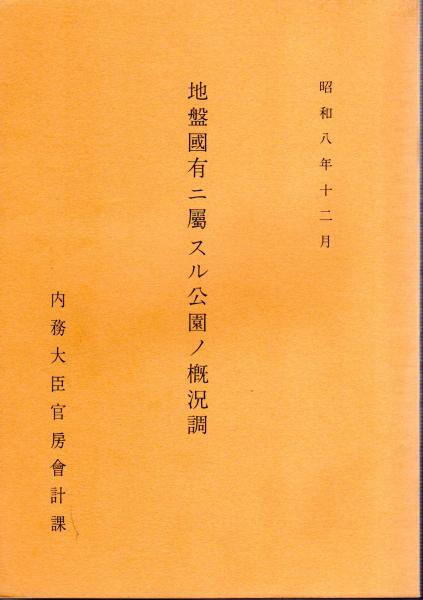 昭和八年十二月
地盤國有ニ屬スル公園ノ概況調
内務大臣官房會計課